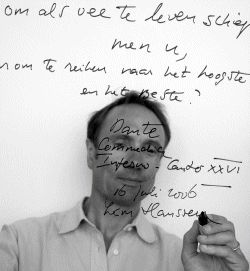 om als vee te leven schiep
men u,
om te reiken naar het hoogste
en het beste?
Dante
Commedia
Inferno - Canto XXVI
16 juli 2006